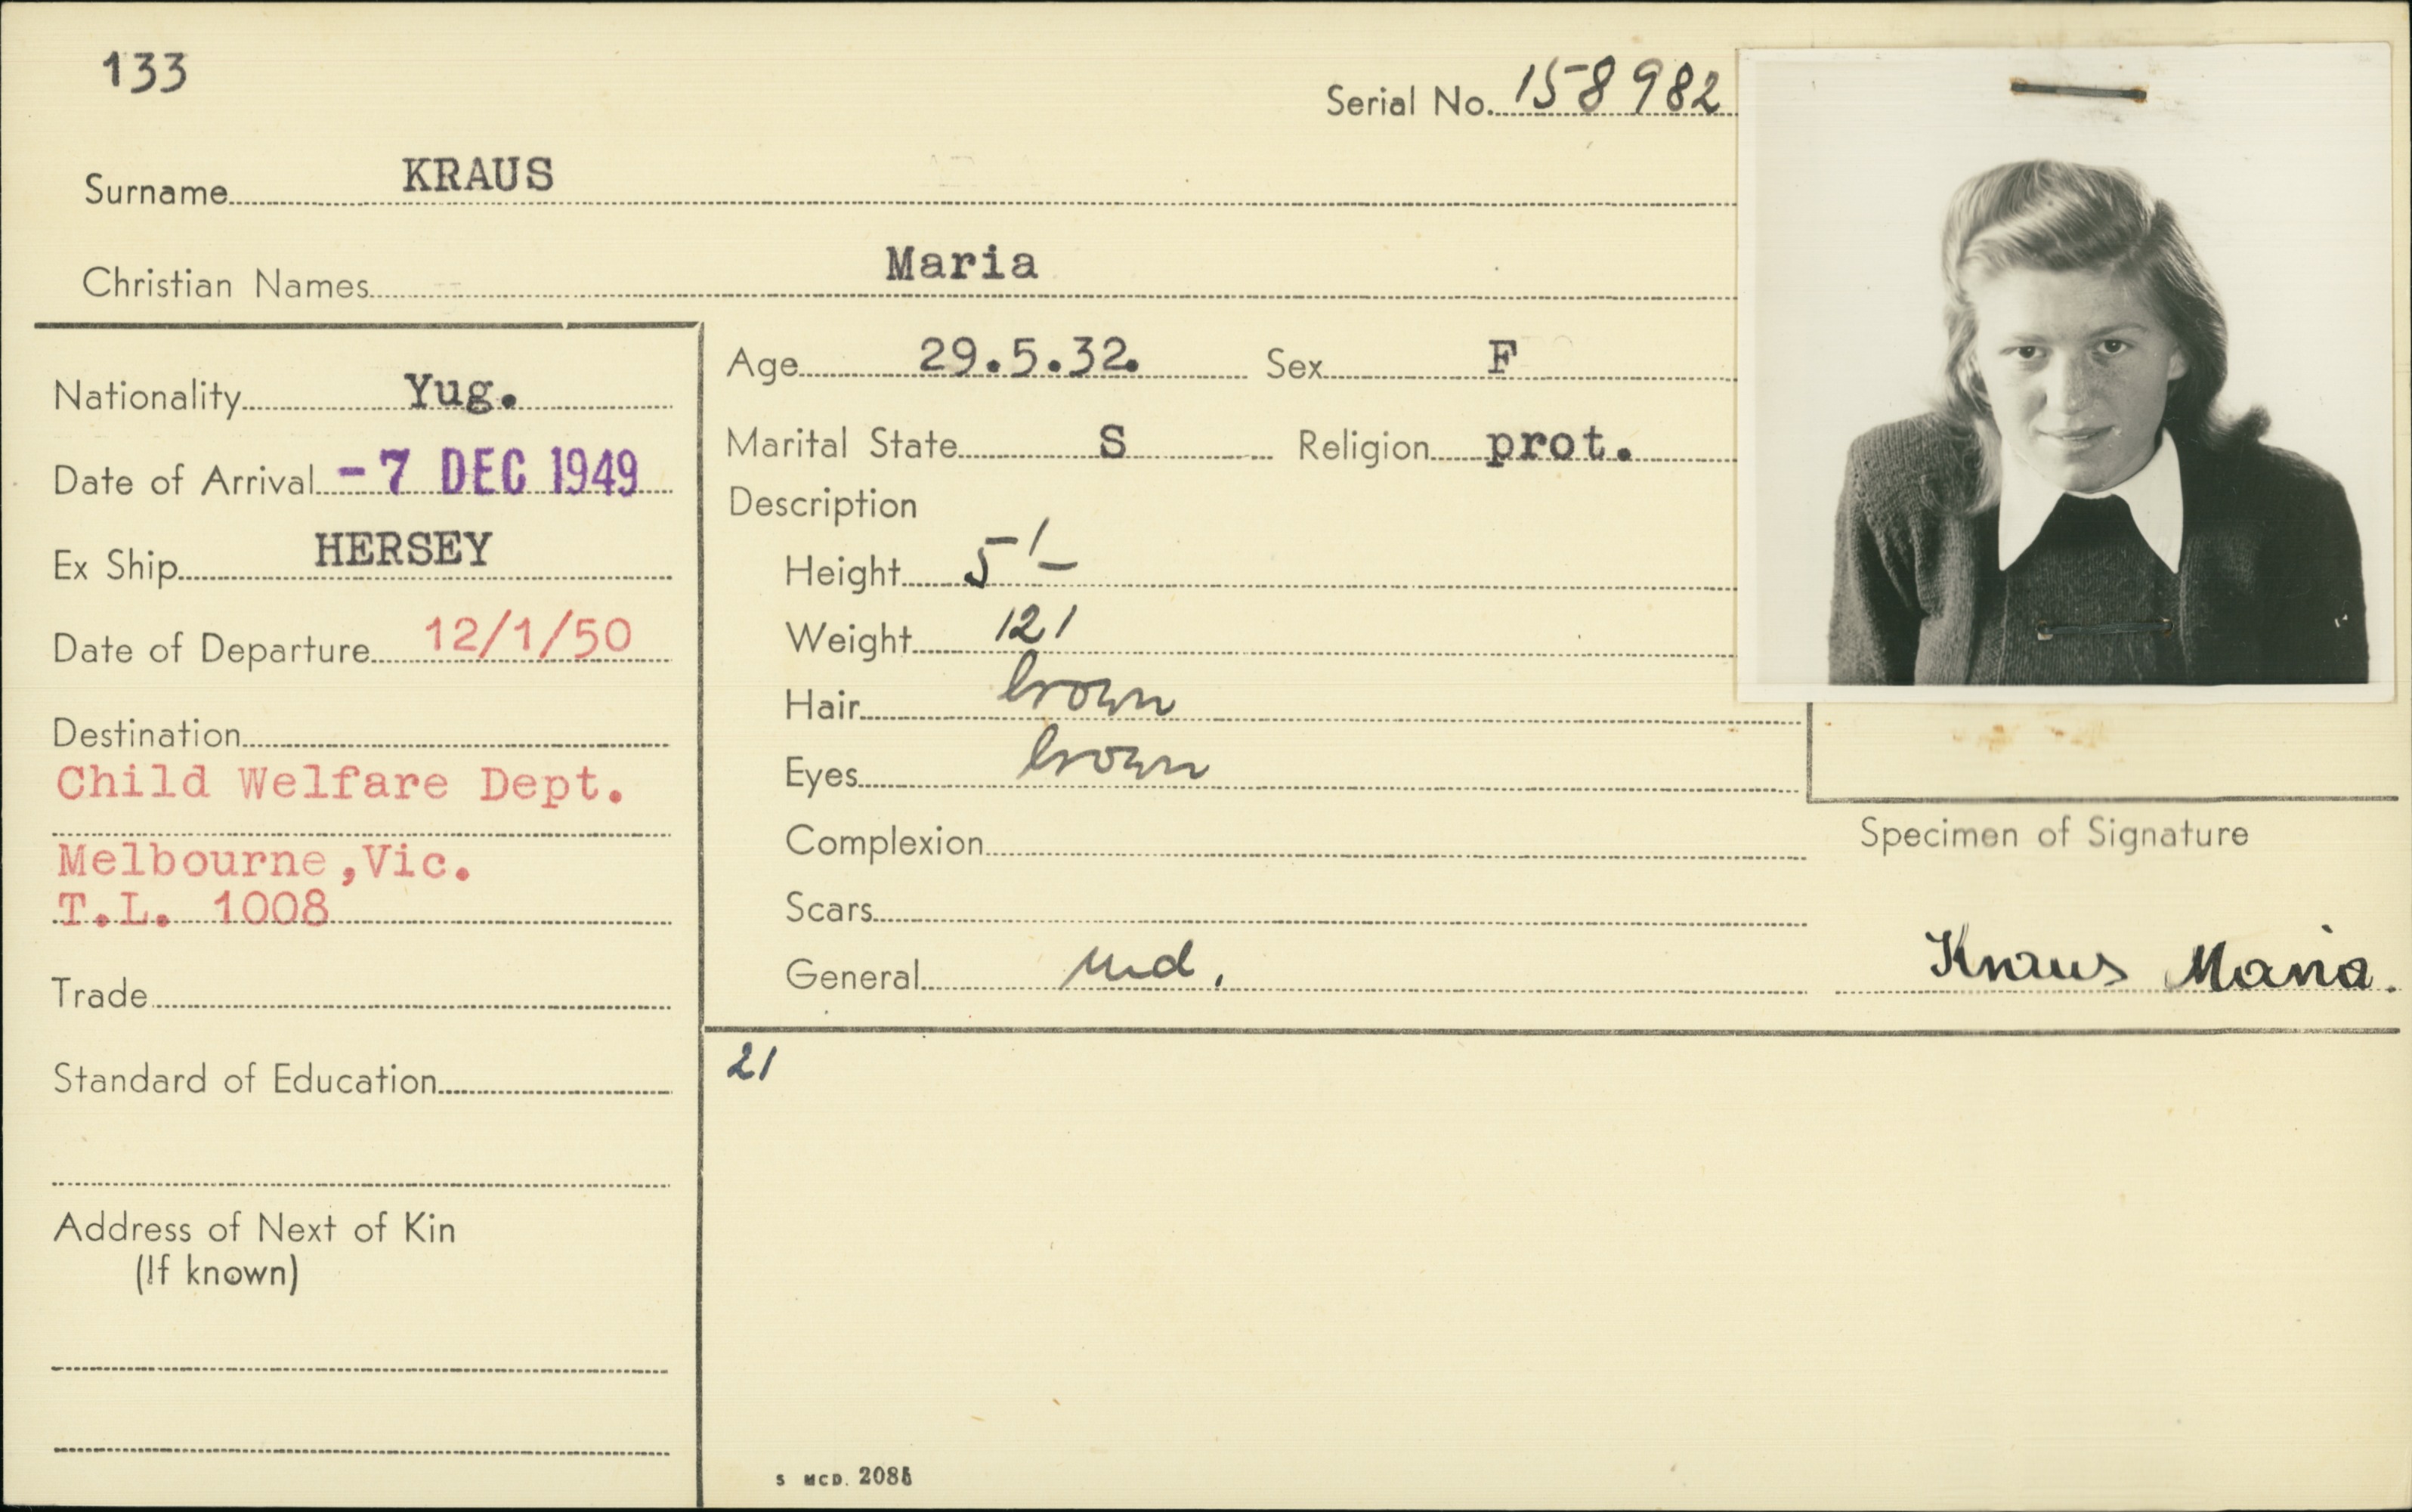 133
Serial No. 158982
Surname KRAUS
Christian Names Maria
Nationality Yug.
Date of Arrival - 7 DEC 1949
Ex Ship HERSEY
Date of Departure 12/1/50
Destination
Child Welfare Dept.
Melbourne,Vic.
T.L. 1008
Trade
Standard of Education
Address of Next of Kin
(If known)
Age 29.5.32. Sex F
Marital State S Religion prot.
Description
Height 5'-
Weight 121
Hair brown
Eyes brown
Complexion
Scars
General
Specimen of Signature
Kraus Maria.
21
S MCD.